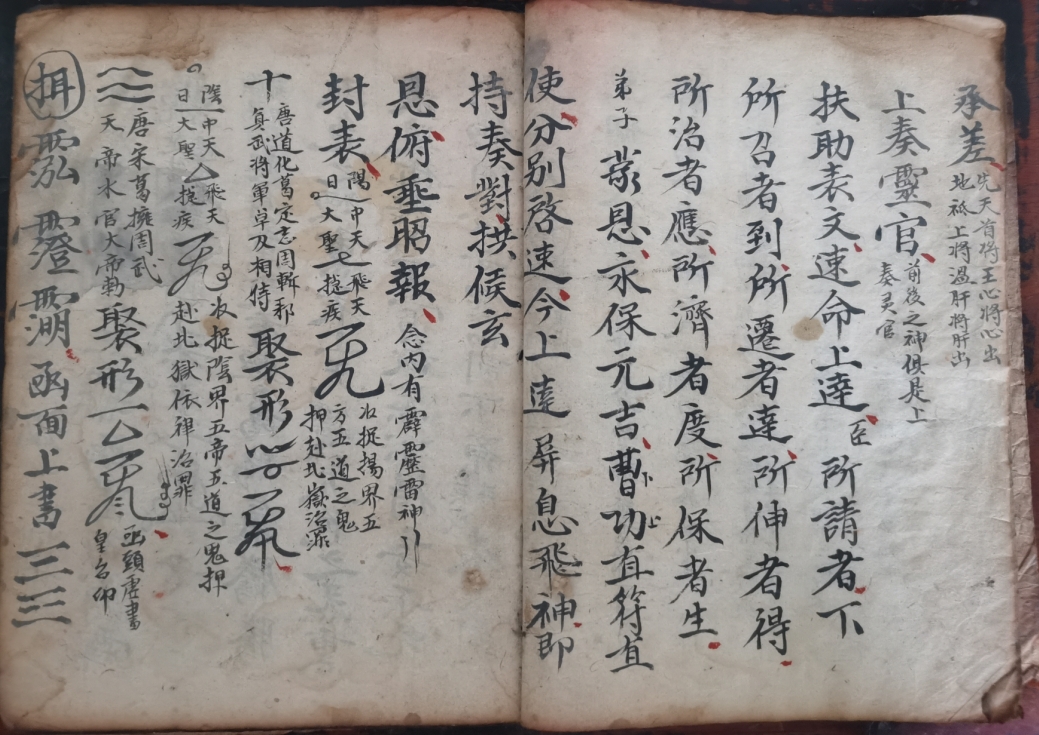 承差先天首將王心將心出
地祗上將溫肝將肝出
上奏靈官前後之神俱是上
奏灵官
扶助表文速命上達至所請者下
所召者到所遷者達所伸者得
所治者應所濟者度所保者生
弟子蒙恩永保元吉曹下功上直符直
使分別啓速今上達屏息飛神即
持奏對拱候玄
恩俯垂昭報念內有霹靈雷神
封表陽中天飛天
日大聖七捉疾
捉揚界五
方五道之鬼
押赴北嶽治
十唐道化葛定志周
真武將軍卓及相侍
聚形
陰中天飛天
日大聖捉疾
捉陰界五帝五道之鬼押
赴北獄依律治罪
唐宋葛擁周武
天帝水官大帝勑
聚形一
函頭虛書
皇名印
函面上書三三